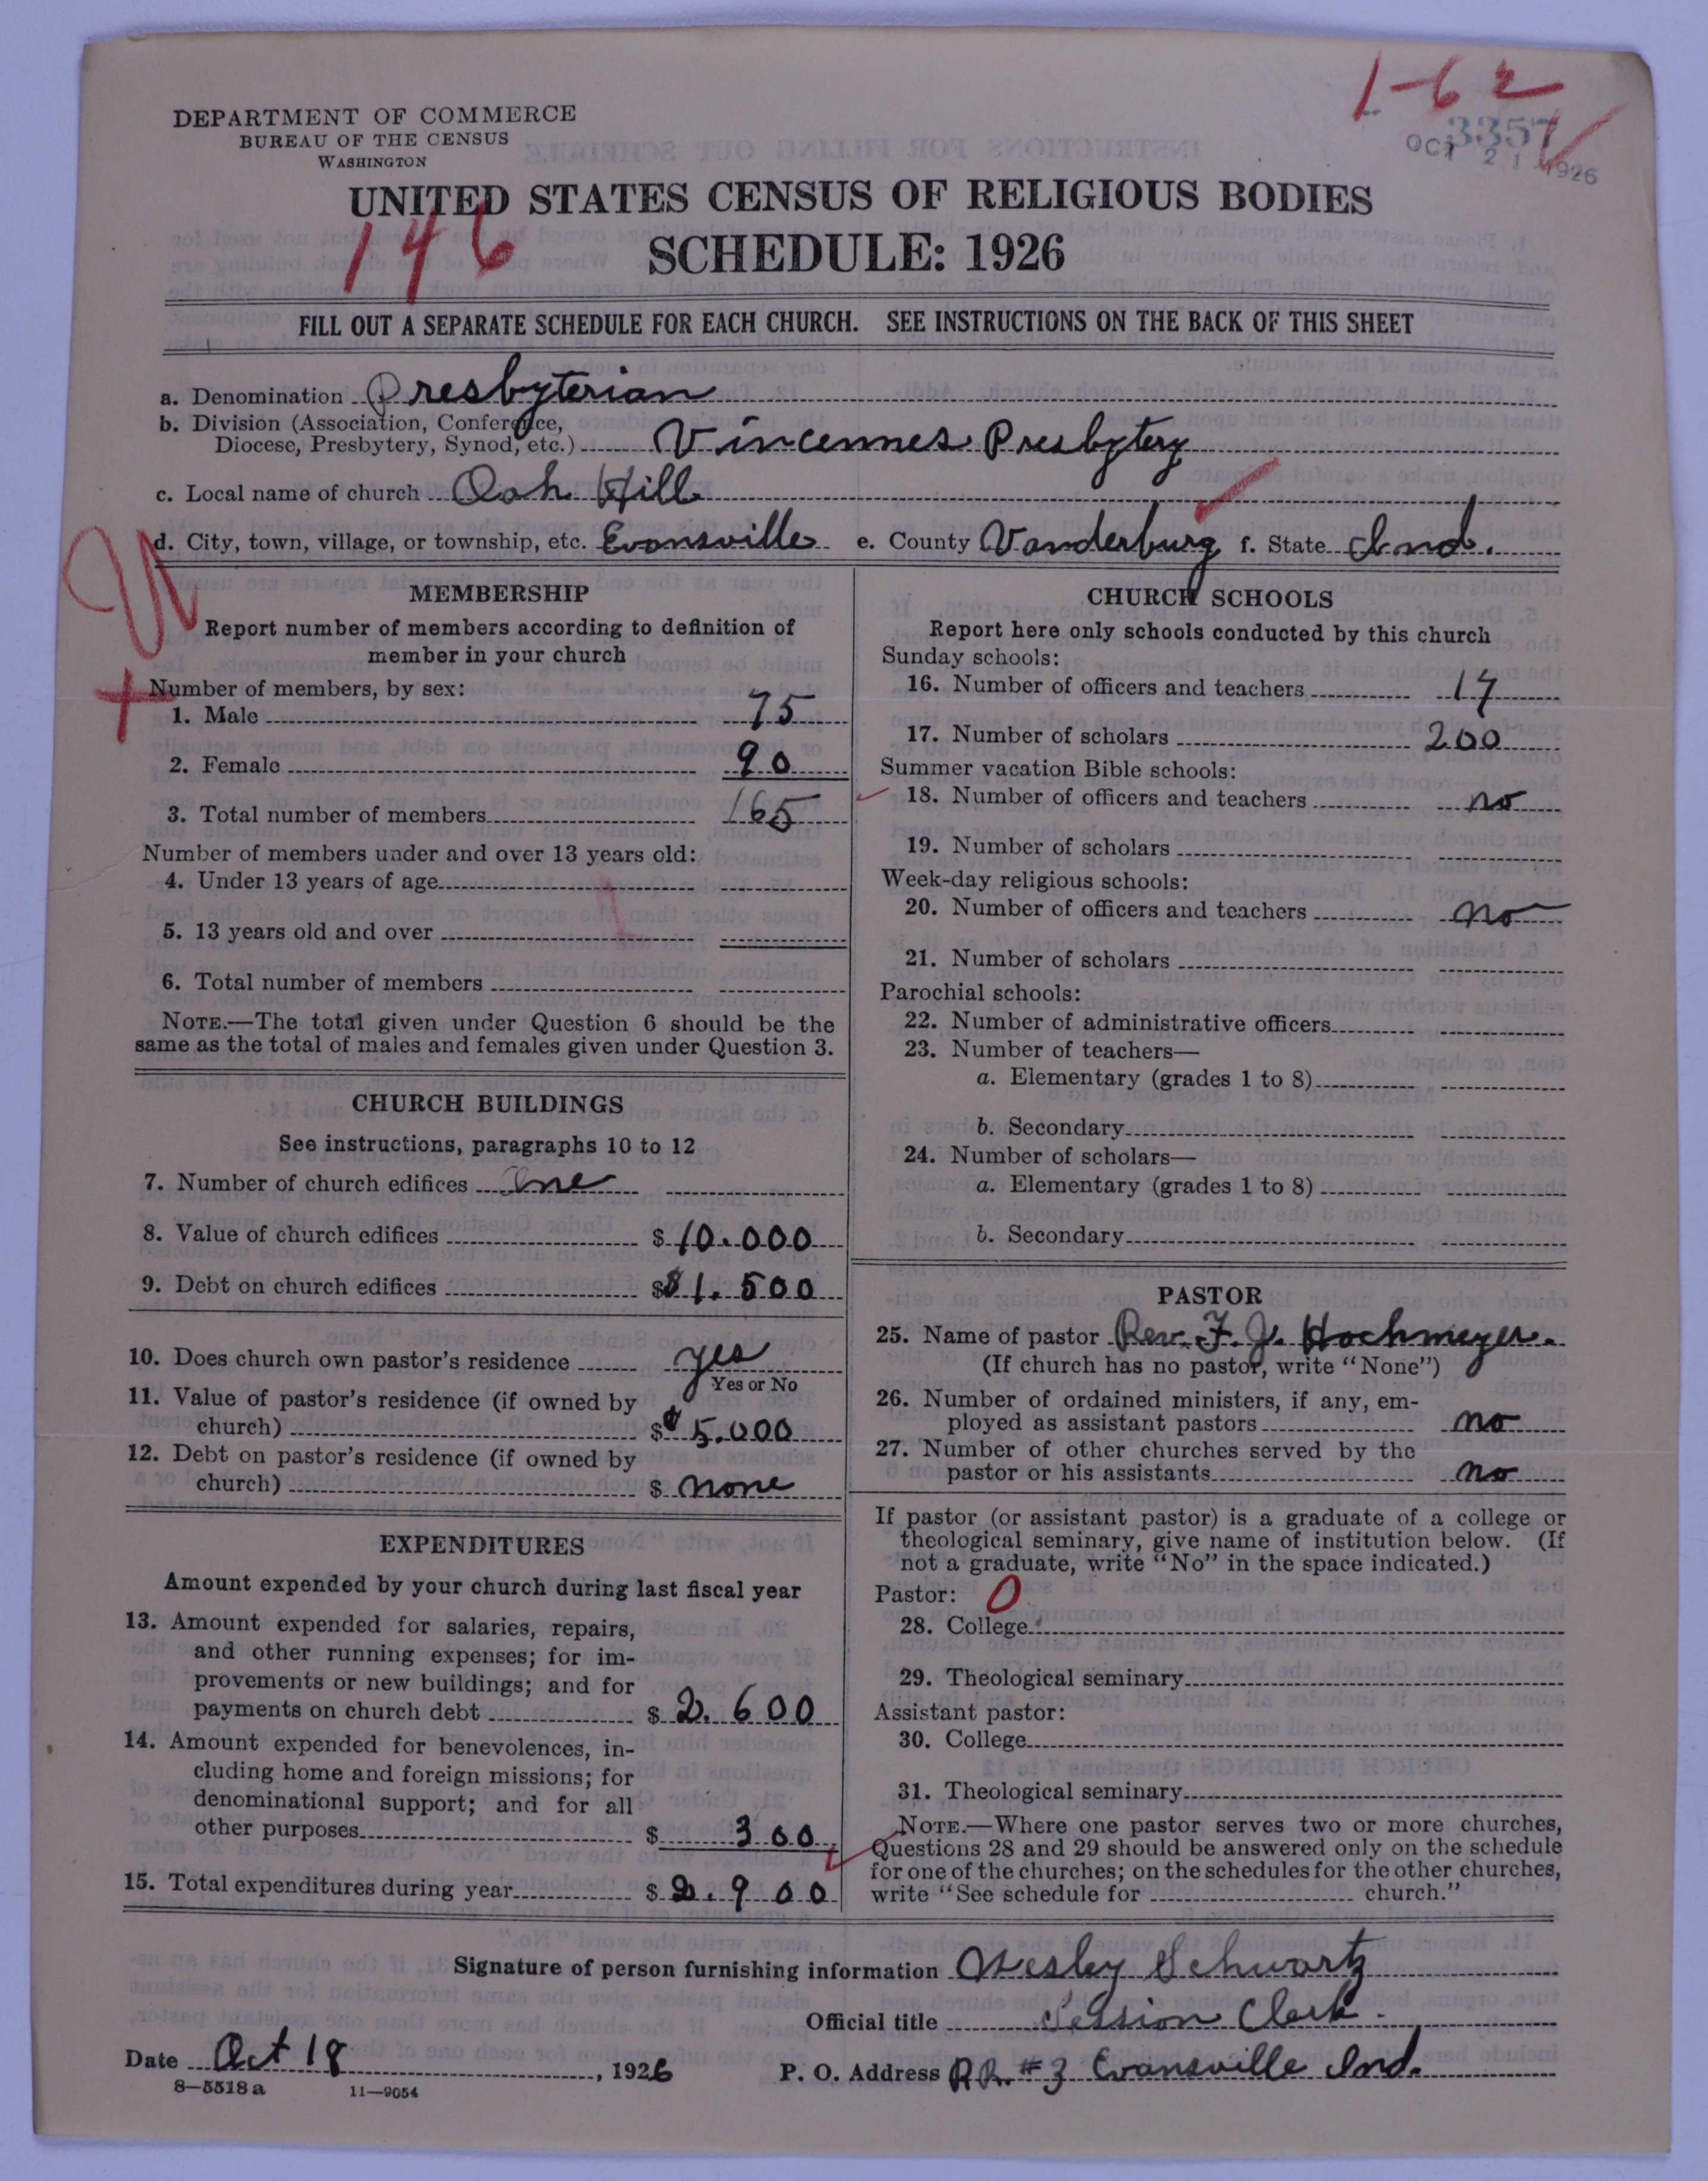 1-62
3357
OCT 21 1926
DEPARTMENT OF COMMERCE
BUREAU OF THE CENSUS
WASHINGTON
UNITED STATES CENSUS OF RELIGIOUS BODIES
146
SCHEDULE: 1926
FILL OUT A SEPARATE SCHEDULE FOR EACH CHURCH. SEE INSTRUCTIONS ON THE BACK OF THIS SHEET
a. Denomination Presbyterian
b. Division (Association, Conference,
Diocese, Presbytery, Synod, etc.) Vincennes Presbytery
c. Local name of church Oak Hill
d. City, town, village, or township, etc. Evansville e. County Vanderburg f. State Ind.
MEMBERSHIP
Report number of members according to definition of
member in your church
Number of members, by sex:
1. Male 75
2. Female 90
3. Total number of members 165
Number of members under and over 13 years old:
4. Under 13 years of age
5. 13 years old and over
6. Total number of members
NOTE.—The total given under Question 6 should be the
same as the total of males and females given under Question 3.
CHURCH BUILDINGS
See instructions, paragraphs 10 to 12
7. Number of church edifices One
8. Value of church edifices $ 10.000
9. Debt on church edifices $ $1.500
10. Does church own pastor's residence yes
Yes or No
11. Value of pastor's residence (if owned by
church) $ $5.000
12. Debt on pastor's residence (if owned by
church) $ none
EXPENDITURES
Amount expended by your church during last fiscal year
13. Amount expended for salaries, repairs,
and other running expenses; for im-
provements or new buildings; and for
payments on church debt $ 2.600
14. Amount expended for benevolences, in-
cluding home and foreign missions; for
denominational support; and for all
other purposes $ 300
15. Total expenditures during year $ 2.900
CHURCH SCHOOLS
Report here only schools conducted by this church
Sunday schools:
16. Number of officers and teachers 17
17. Number of scholars 200
Summer vacation Bible schools:
18. Number of officers and teachers no
19. Number of scholars
Week-day religious schools:
20. Number of officers and teachers no
21. Number of scholars
Parochial schools:
22. Number of administrative officers
23. Number of teachers—
a. Elementary (grades 1 to 8)
b. Secondary
24. Number of scholars—
a. Elementary (grades 1 to 8)
b. Secondary
PASTOR
25. Name of pastor Rev. F. J. Hochmeyer.
(If church has no pastor, write "None")
26. Number of ordained ministers, if any, em-
ployed as assistant pastors no
27. Number of other churches served by the
pastor or his assistants no
If pastor (or assistant pastor) is a graduate of a college or
theological seminary, give name of institution below. (If
not a graduate, write "No" in the space indicated.)
Pastor: 0
28. College
29. Theological seminary
Assistant pastor:
30. College
31. Theological seminary
NOTE.—Where one pastor serves two or more churches,
Questions 28 and 29 should be answered only on the schedule
for one of the churches; on the schedules for the other churches,
write "See schedule for church."
Signature of person furnishing information Wesley Schwartz
Official title Session Clerk.
Date Oct 18, 1926 P. O. Address RR. #3 Evansville Ind.
8—5518a 11—9054